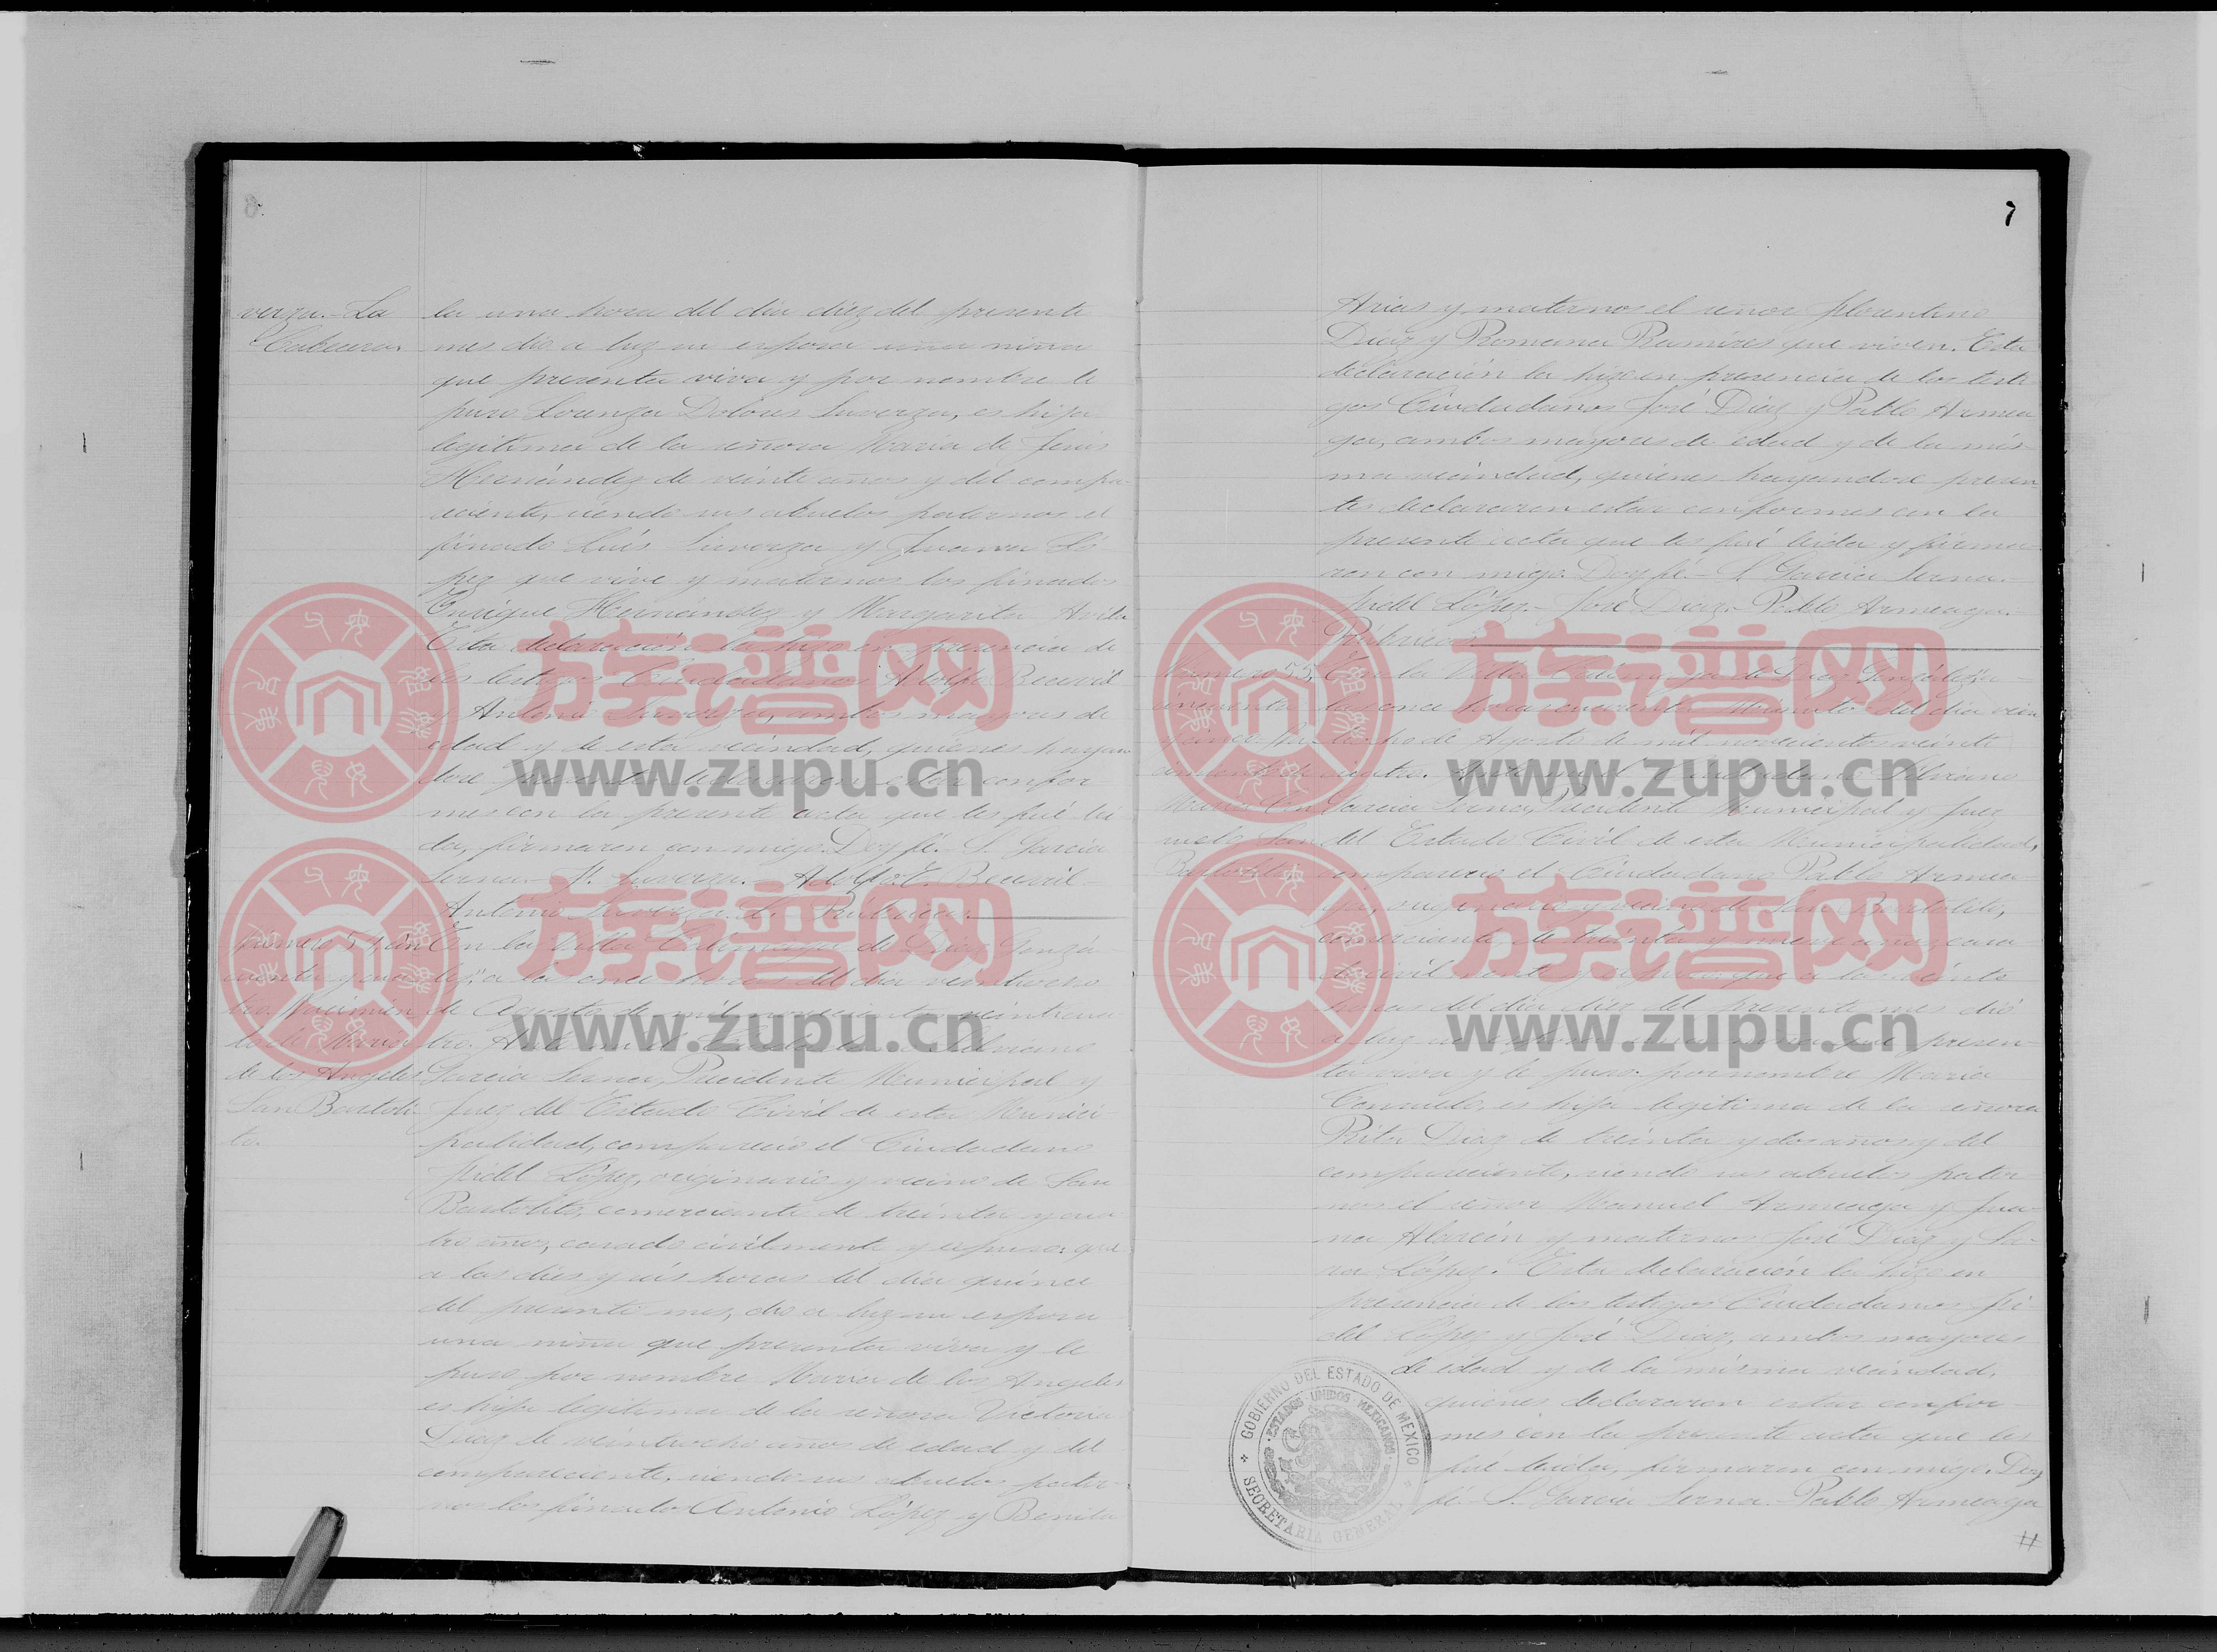 7
verza.- La
Cabecera.
la una hora del dia diez del presente
mes dió a luz su esposa una niña
que presenta viva y por nombre le
puso Lorenza Dolores Luverza, es hija
legitima de la señora Maria de Jesús
Hernández de veinte años y del compa-
reciente, siendo sus abuelos paternos el
finado Luis Luverza y Juana Ló
pez que vive y maternos los finados
Enrique Hernández y Margarita Avila
Esta declaración la hizo en presencia de
los testigos Ciudadanos Adolfo Becerril
y Antonio Luverza, ambos mayores de
edad y de esta vecindad, quienes hayan
dose presentes declararon estar confor
mes con la presente acta que les fué lei
da, firmaron con migo. Doy fé.- S. Garcia
Serna.- Luverza.- Adolfo E. Becerril.-
Antonio Luverza. Rúbricas.
Número 54 cin
cuenta y cua
tro. Nacimien
to de Maria
de los Angeles
San Bartoli-
to.
En la Villa Calimaya de Diaz Gonzá
lez, a las once horas del dia veintiocho
de Agosto de mil novecientos veinticua-
tro. Ante mi el Ciudadano Silviano
Garcia Serna, Presidente Municipal y
Juez del Estado Civil de esta Munici-
palidad, compareció el Ciudadano
Fidel López, originario y vecino de San
Bartolito, comerciante de treinta y cua
tro años, casado civilmente y expuso: que
a las dies y seis horas del dia quince
del presente mes, dió a luz su esposa
una niña que presenta viva y le
puso por nombre Maria de los Angeles
es hija legitima de la señora Victoria
Diaz de veintiocho años de edad y del
compareciente, siendo sus abuelos pater-
nos los finados Antonio López y Benita
Arias y maternos el señor Florentino
Diaz y Romana Ramires que viven. Esta
declaración la hizo en presencia de los testi
gos Ciudadanos José Diaz y Pablo Armea
ga, ambos mayores de edad y de la mis-
ma vecindad, quienes hayandose presen
tes declararon estar conformes con la
presente acta que les fué leida y firma-
ron con migo. Doy fé.- S. Garcia Serna.-
Fidel López.- José Diaz.- Pablo Armeaga.-
Rúbricas.
Número 55
cincuenta
Maria Con
suelo San
Bartolito
En la Villa Calimaya de Diaz González, a
las once horas cincuenta minutos del dia vein
tiocho de Agosto de mil novecientos veinti
cuatro. Ante mi el Ciudadano Silviano
Garcia Serna, Presidente Municipal y Juez
del Estado Civil de esta Municipalidad,
compareció el Ciudadano Pablo Armea-
ga, originario y vecino de San Bartolito,
comerciante de treinta y nueve años, casa-
do civilmente y expuso: que a las veinte
horas del dia diez del presente mes dió
a luz su esposa una niña que presen-
ta viva y le puso por nombre Maria
Consuelo, es hija legitima de la señora
Rita Diaz de treinta y dos años y del
compareciente, siendo sus abuelos pater
nos el señor Manuel Armeaga y Jua-
na Alarcón y maternos José Diaz y Sa-
ra López. Esta declaración la hizo en
presencia de los testigos Ciudadanos Fi
del López y José Diaz, ambos mayores
de edad y de la misma vecindad,
quienes declararon estar confor-
mes con la presente acta que les
fué leida, firmaron con migo. Doy
fé.- S. Garcia Serna. Pablo Armeaga
GOBIERNO DEL ESTADO DE MEXICO
ESTADOS UNIDOS MEXICANOS
SECRETARIA GENERAL
族谱网
www.zupu.cn
族谱网
www.zupu.cn
族谱网
www.zupu.cn
族谱网
www.zupu.cn